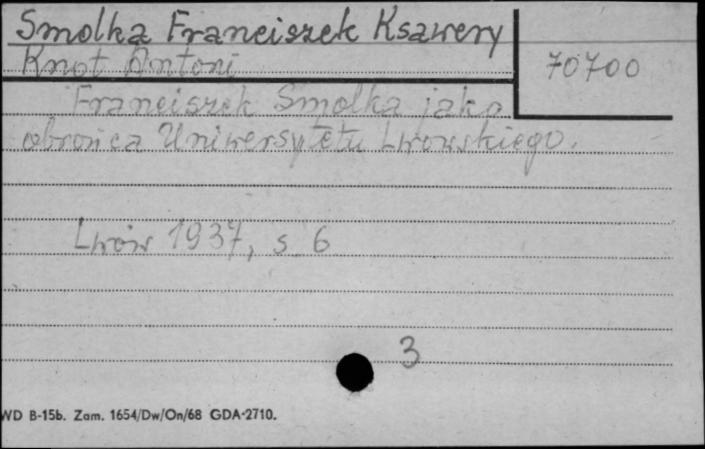 Smolka Franciszek Ksawery
Knot Antoni
70700
Franciszek Smolka jako
obrońca Uniwersytetu Lwowskiego.
Lwów 1937, s 6
3
WD B-15b. Zam. 1654/Dw/On/68 GDA-2710.